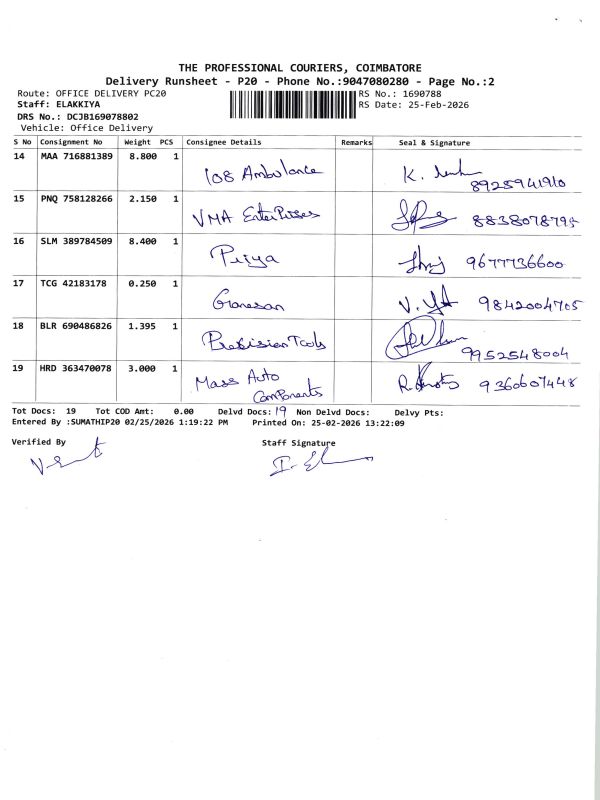 THE PROFESSIONAL COURIERS, COIMBATORE
Delivery Runsheet - P20 - Phone No.:9047080280 - Page No.:2
Route: OFFICE DELIVERY PC20 RS No.: 1690788
Staff: ELAKKIYA RS Date: 25-Feb-2026
DRS No.: DCJB169078802
Vehicle: Office Delivery
S No Consignment No Weight PCS Consignee Details Remarks Seal & Signature
14 MAA 716881389 8.800 1 108 Ambulance K. 8925941910
15 PNQ 758128266 2.150 1 VMA EnterPrises 8838078795
16 SLM 389784509 8.400 1 Priya 9677736600
17 TCG 42183178 0.250 1 Ganesan 9842004705
18 BLR 690486826 1.395 1 Precision Tools 9952548004
19 HRD 363470078 3.000 1 Mass Auto ComPonents 9360607448
Tot Docs: 19 Tot COD Amt: 0.00 Delvd Docs: 19 Non Delvd Docs: Delvy Pts:
Entered By :SUMATHIP20 02/25/2026 1:19:22 PM Printed On: 25-02-2026 13:22:09
Verified By Staff Signature